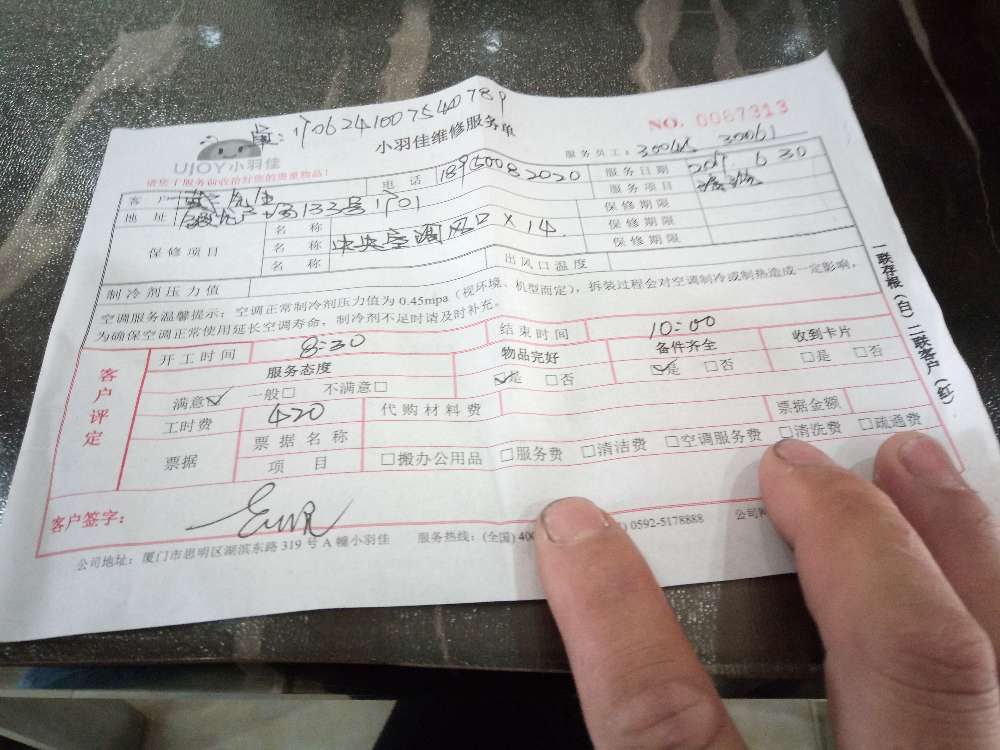 1906241007540789
小羽佳维修服务单
NO. 0067313
UJOY小羽佳
请您于服务前收拾好您的贵重物品！
服务员工: 30061
客户 电话 18950082020 服务日期 2019. 6 30
地址 133号1901 服务项目
保修项目 名称 保修期限
名称 中央空调风口×14. 保修期限
名称 保修期限
制冷剂压力值 出风口温度
空调服务温馨提示：空调正常制冷剂压力值为 0.45mpa（视环境、机型而定），拆装过程会对空调制冷或制热造成一定影响，
为确保空调正常使用延长空调寿命，制冷剂不足时请及时补充。
一联存根（白）二联客户（红）
客户评定
开工时间 8:30 结束时间 10:00
服务态度 物品完好 备件齐全 收到卡片
满意☑ 一般□ 不满意□ ☑是 □否 ☑是 □否 □是 □否
工时费 420 代购材料费
票据 票据名称 票据金额
项目 □搬办公用品 □服务费 □清洁费 □空调服务费 □清洗费 □疏通费
客户签字：
公司地址：厦门市思明区湖滨东路 319 号 A 幢小羽佳 服务热线：(全国) 400 0592-5178888 公司